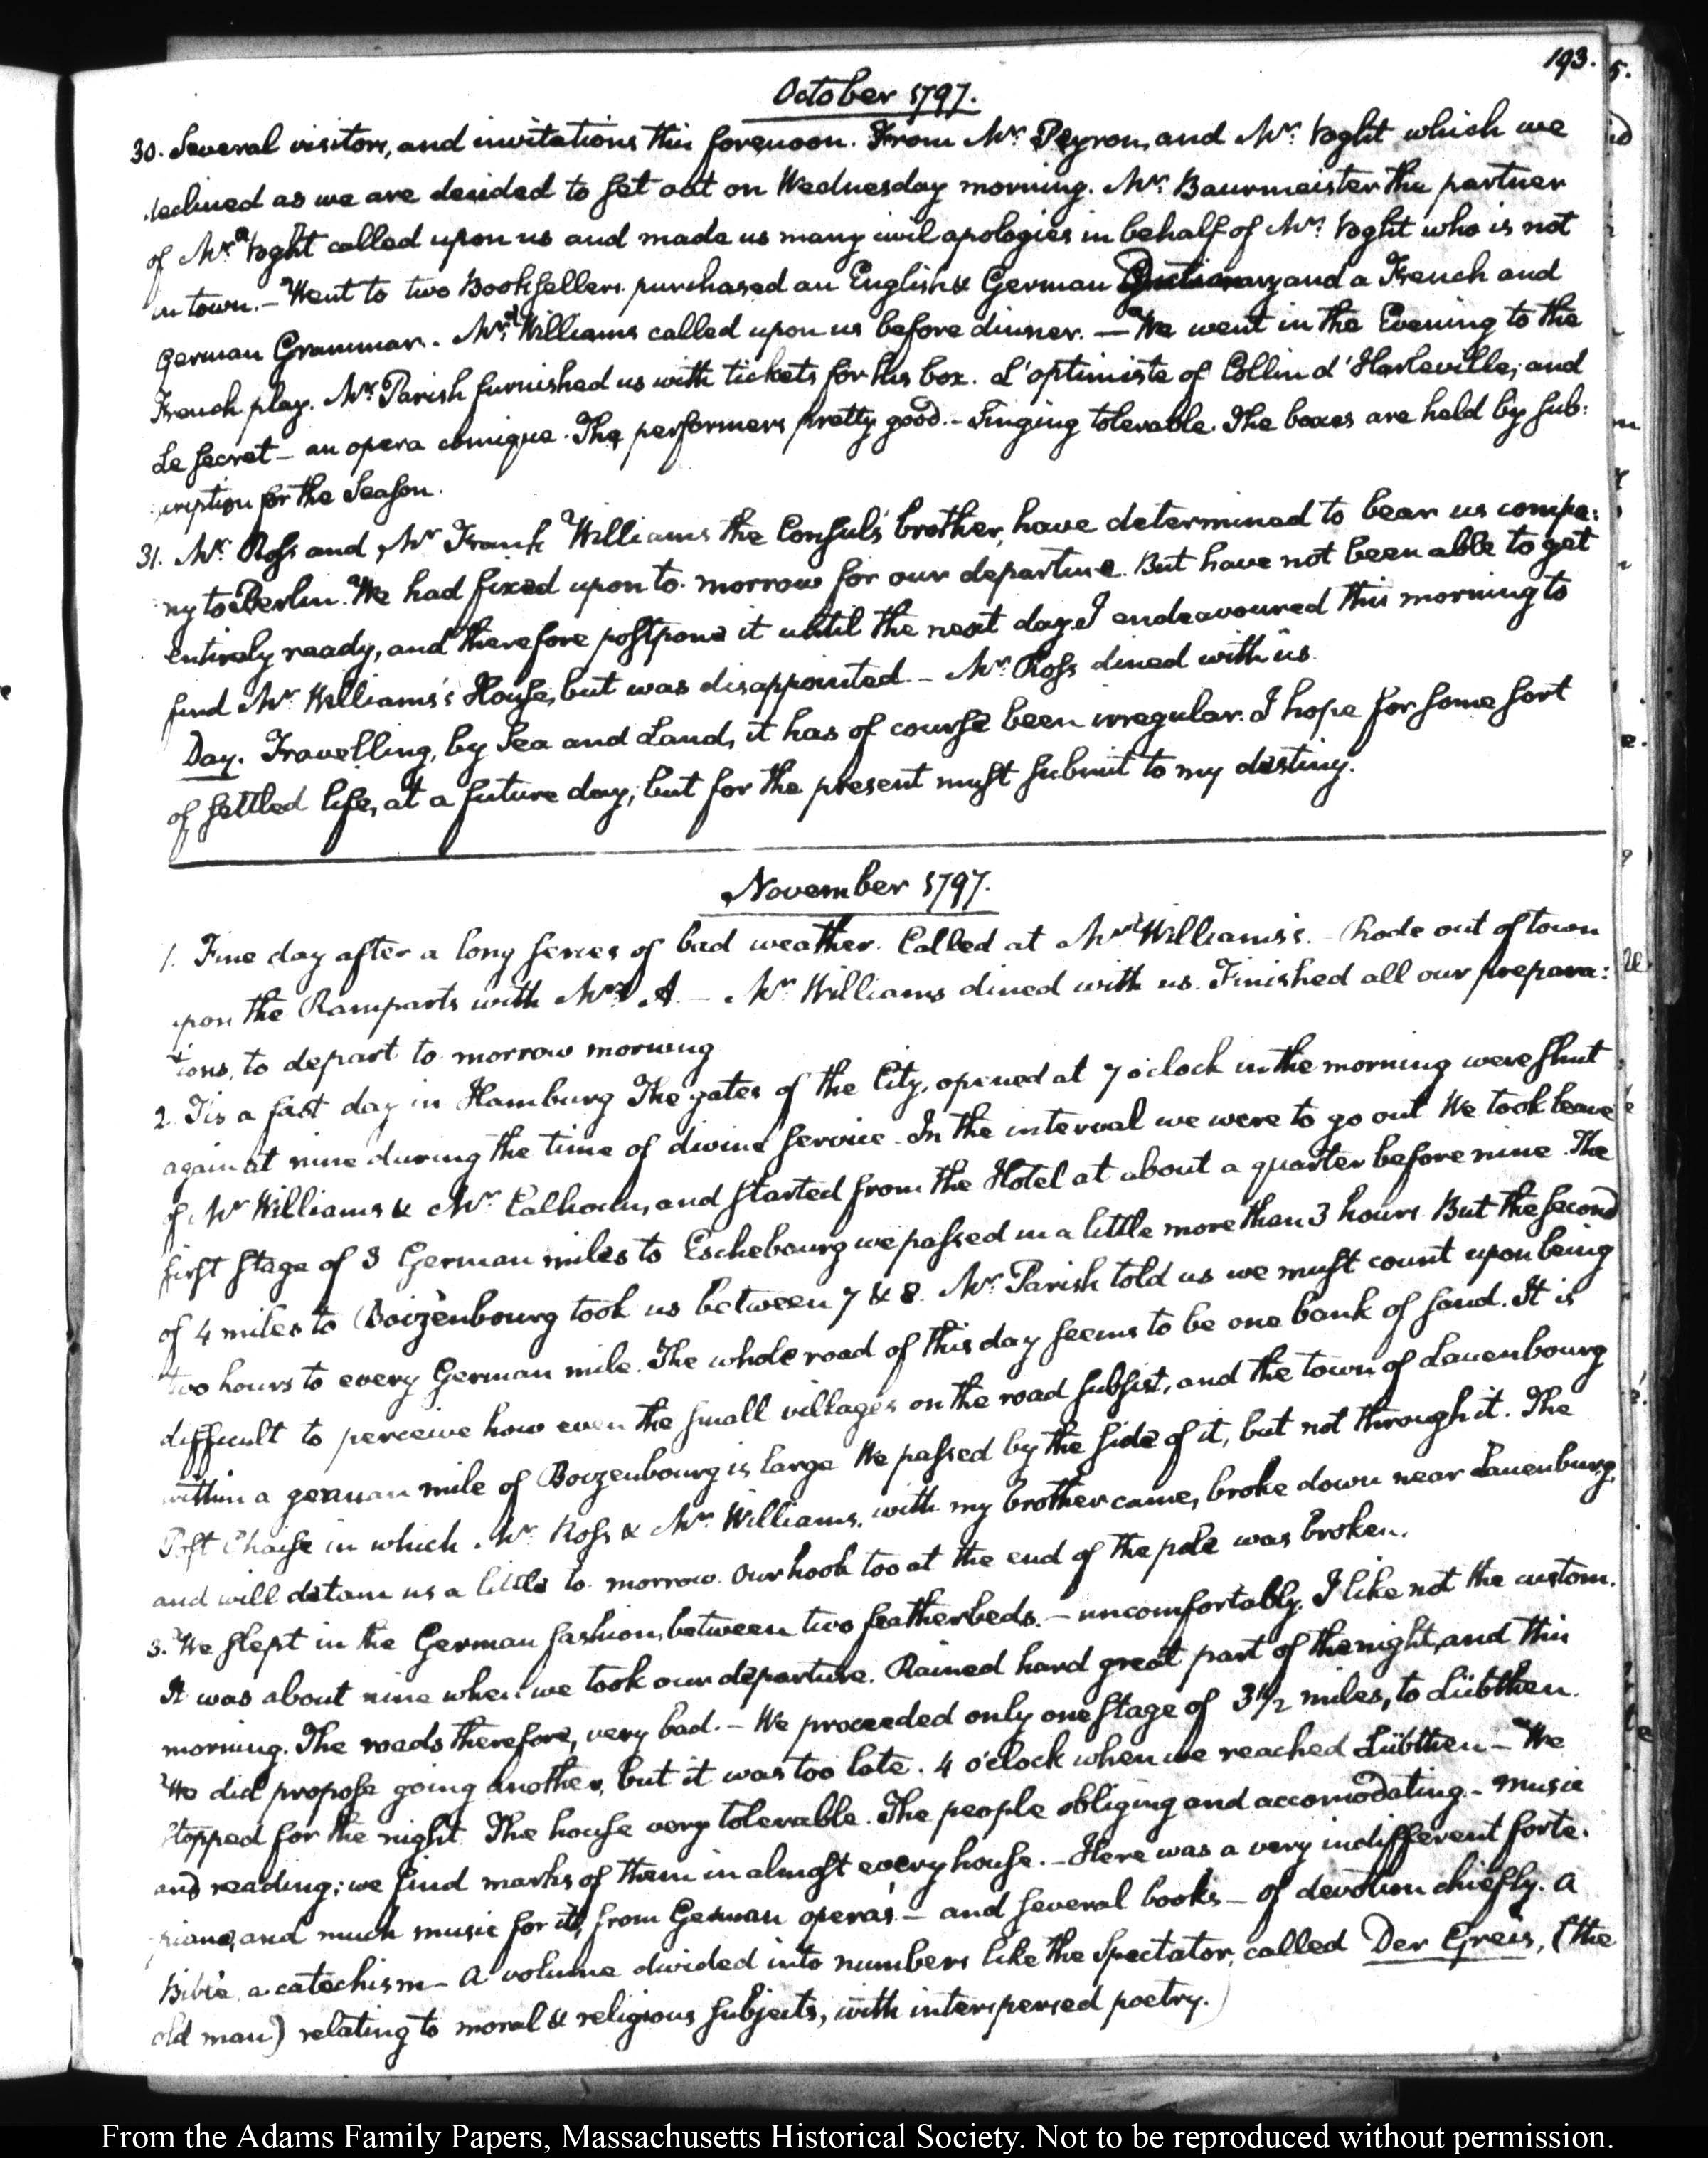 193.
October 1797.
30. Several visitors, and invitations this forenoon. From Mr. Peyron, and Mr. Voght which we
declined as we are decided to set out on Wednesday morning. Mr. Baurmeister the partner
of Mr. Voght called upon us and made us many civil apologies in behalf of Mr. Voght who is not
in town. — Went to two Booksellers purchased an English & German Dictionary and a French and
German Grammar. Williams called upon us before dinner. — We went in the Evening to the
French play. Mr. Parish furnished us with tickets for his box. L'optimiste of Collin d'Harleville; and
Le Secret — an opera comique. The performers pretty good. — Singing tolerable. The boxes are held by sub:
scription for the Season.
31. Mr. Ross and Mr. Frank Williams the Consul's brother, have determined to bear us compa:
ny to Berlin. We had fixed upon to-morrow for our departure. But have not been able to get
entirely ready, and therefore postpone it until the next day. I endeavoured this morning to
find Mr. Williams's House, but was disappointed — Mr. Ross dined with us.
Day. Travelling, by Sea and Land, it has of course been irregular. I hope for some sort
of settled life, at a future day; but for the present must submit to my destiny.
November 1797.
1. Fine day after a long series of bad weather. Called at Williams's. — Rode out of town
upon the Ramparts with Mrs. A. — Mr. Williams dined with us. Finished all our prepara:
tions, to depart to-morrow morning
2. Tis a fast day in Hamburg The gates of the City, opened at 7 o'clock in the morning were shut
again at nine during the time of divine service. In the interval we were to go out We took leave
of Mr Williams & Mr. Calhoun, and started from the Hotel at about a quarter before nine. The
first stage of 3 German miles to Eschebourg we passed in a little more than 3 hours But the second
of 4 miles to Boizenbourg took us between 7 & 8. Mr. Parish told us we must count upon being
two hours to every German mile. The whole road of this day seems to be one bank of sand. It is
difficult to perceive how even the small villages on the road subsist, and the town of Lauenbourg
within a german mile of Boizenbourg is large We passed by the side of it, but not through it. The
Post Chaise in which Mr. Ross & Mr. Williams, with my brother came, broke down near Lauenburg,
and will detain us a little to-morrow. Our hook too at the end of the pole was broken.
3. We slept in the German fashion, between two featherbeds. — uncomfortably. I like not the custom.
It was about nine when we took our departure. Rained hard great part of the night, and this
morning. The roads therefore, very bad. — We proceeded only one stage of 3 1/2 miles, to Lübthen.
We did propose going another, but it was too late. 4 o'clock when we reached Lübthen — We
stopped for the night. The house very tolerable. The people obliging and accomodating. — Music
and reading; we find marks of them in almost every house. — Here was a very indifferent forte-
piano, and much music for it, from German opera's — and several books — of devotion chiefly. A
Bible, a catechism — A volume divided into numbers like the Spectator, called Der Greis, (the
old man) relating to moral & religious subjects, with interspersed poetry.
From the Adams Family Papers, Massachusetts Historical Society. Not to be reproduced without permission.